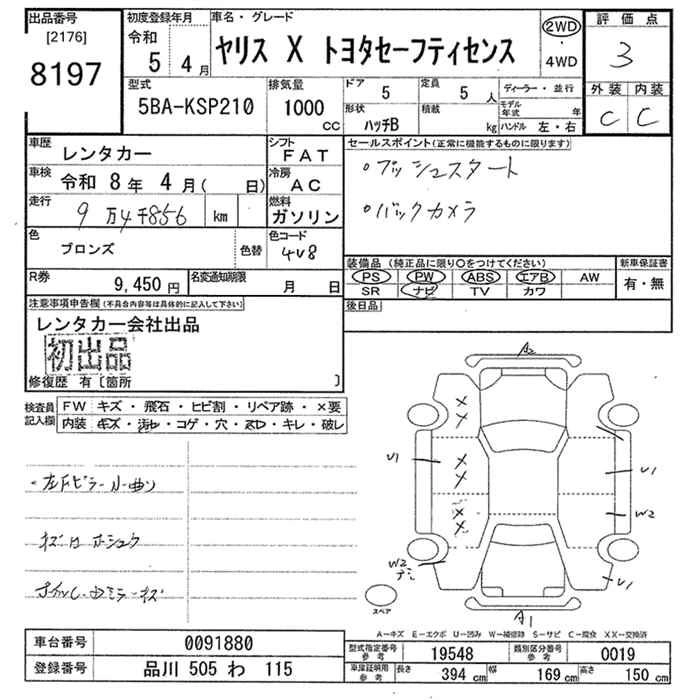 出品番号
[2176]
8197
初度登録年月
令和
5 4月
車名・グレード
ヤリス X トヨタセーフティセンス
2WD
・
4WD
評価点
3
外装 内装
C C
型式
5BA-KSP210
排気量
1000
CC
ドア
5
定員
5 人
形状
ハッチB
積載
kg
ディーラー・並行
モデル
年式 年
ハンドル 左・右
車歴
レンタカー
シフト
FAT
車検
令和 8年 4月( 日)
冷房
AC
走行
9万4千856 km
燃料
ガソリン
色
ブロンズ
色替
色コード
4V8
R券
9,450円
名変通知期限
月 日
セールスポイント(正常に機能するものに限ります)
・プッシュスタート
・バックカメラ
装備品(純正品に限り○をつけてください)
PS PW ABS エアB AW
SR ナビ TV カワ
新車保証書
有・無
後日品
注意事項申告欄(不具合内容等は具体的に記入して下さい)
レンタカー会社出品
初出品
修復歴 有〔箇所 〕
検査員
記入欄
FW キズ・飛石・ヒビ割・リペア跡・×要
内装 キズ・汚レ・コゲ・穴・スレ・キレ・破レ
キズ
A2
U1
U1
W2
W2
U1
A1
スペア
A-キズ E-エクボ U-凹み W-補修跡 S-サビ C-腐食 XX-交換済
車台番号 0091880
登録番号 品川 505 わ 115
型式指定番号
参考
19548
類別区分番号
参考
0019
車庫証明用
参考
長さ 394 cm 幅 169 cm 高さ 150 cm